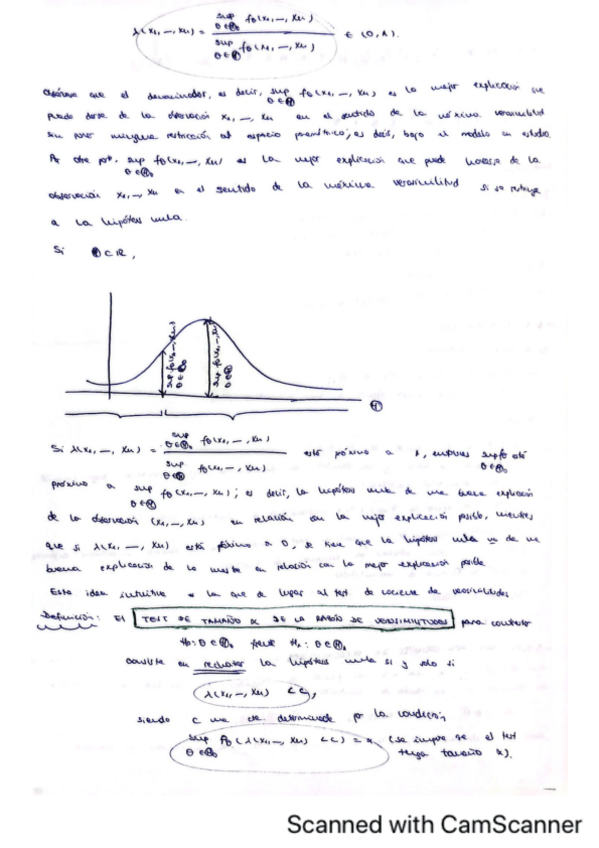 λ(x₁,—,xₙ) = sup θ∈Θ₀ f_θ(x₁,—,xₙ) / sup θ∈Θ f_θ(x₁,—,xₙ) ∈ (0,1).
Obsérvese que el denominador, es decir, sup θ∈Θ f_θ(x₁,—,xₙ) es la mejor explicación que
puede darse de la observación x₁,—,xₙ en el sentido de la máxima verosimilitud
sin poner ninguna restricción al espacio paramétrico; es decir, bajo el modelo en estudio.
Por otra part. sup θ∈Θ₀ f_θ(x₁,—,xₙ) es la mejor explicación que puede de la
observación x₁,—,xₙ en el sentido de la máxima verosimilitud si se restringe
a la hipótesis nula.
Si Θ⊂ℝ,
sup f_θ(x₁,—,xₙ) θ∈Θ₀
sup f_θ(x₁,—,xₙ) θ∈Θ
Θ
Si λ(x₁,—,xₙ) = sup θ∈Θ₀ f_θ(x₁,—,xₙ) / sup θ∈Θ f_θ(x₁,—,xₙ) está próximo a 1, entonces sup f_θ está θ∈Θ₀
próximo a sup θ∈Θ f_θ(x₁,—,xₙ); es decir, la hipótesis nula da una buena explicación
de la observación (x₁,—,xₙ) en relación con la mejor explicación posible, mientras
que si λ(x₁,—,xₙ) está próximo a 0, se tiene que la hipótesis nula no da una
buena explicación de la muestra en relación con la mejor explicación posible.
Esta idea intuitiva es la que da lugar al test de cociente de verosimilitudes
Definición: El TEST DE TAMAÑO α DE LA RAZÓN DE VEROSIMILITUDES para contrastar
H₀: θ∈Θ₀ frente H₁: θ∈Θ₁
consiste en rechazar la hipótesis nula si y solo si
λ(x₁,—,xₙ) < c,
siendo c una cte. determinada por la condición,
sup θ∈Θ₀ P_θ(λ(x₁,—,xₙ) < c) = α (se impone que el test
tenga tamaño α).
Scanned with CamScanner